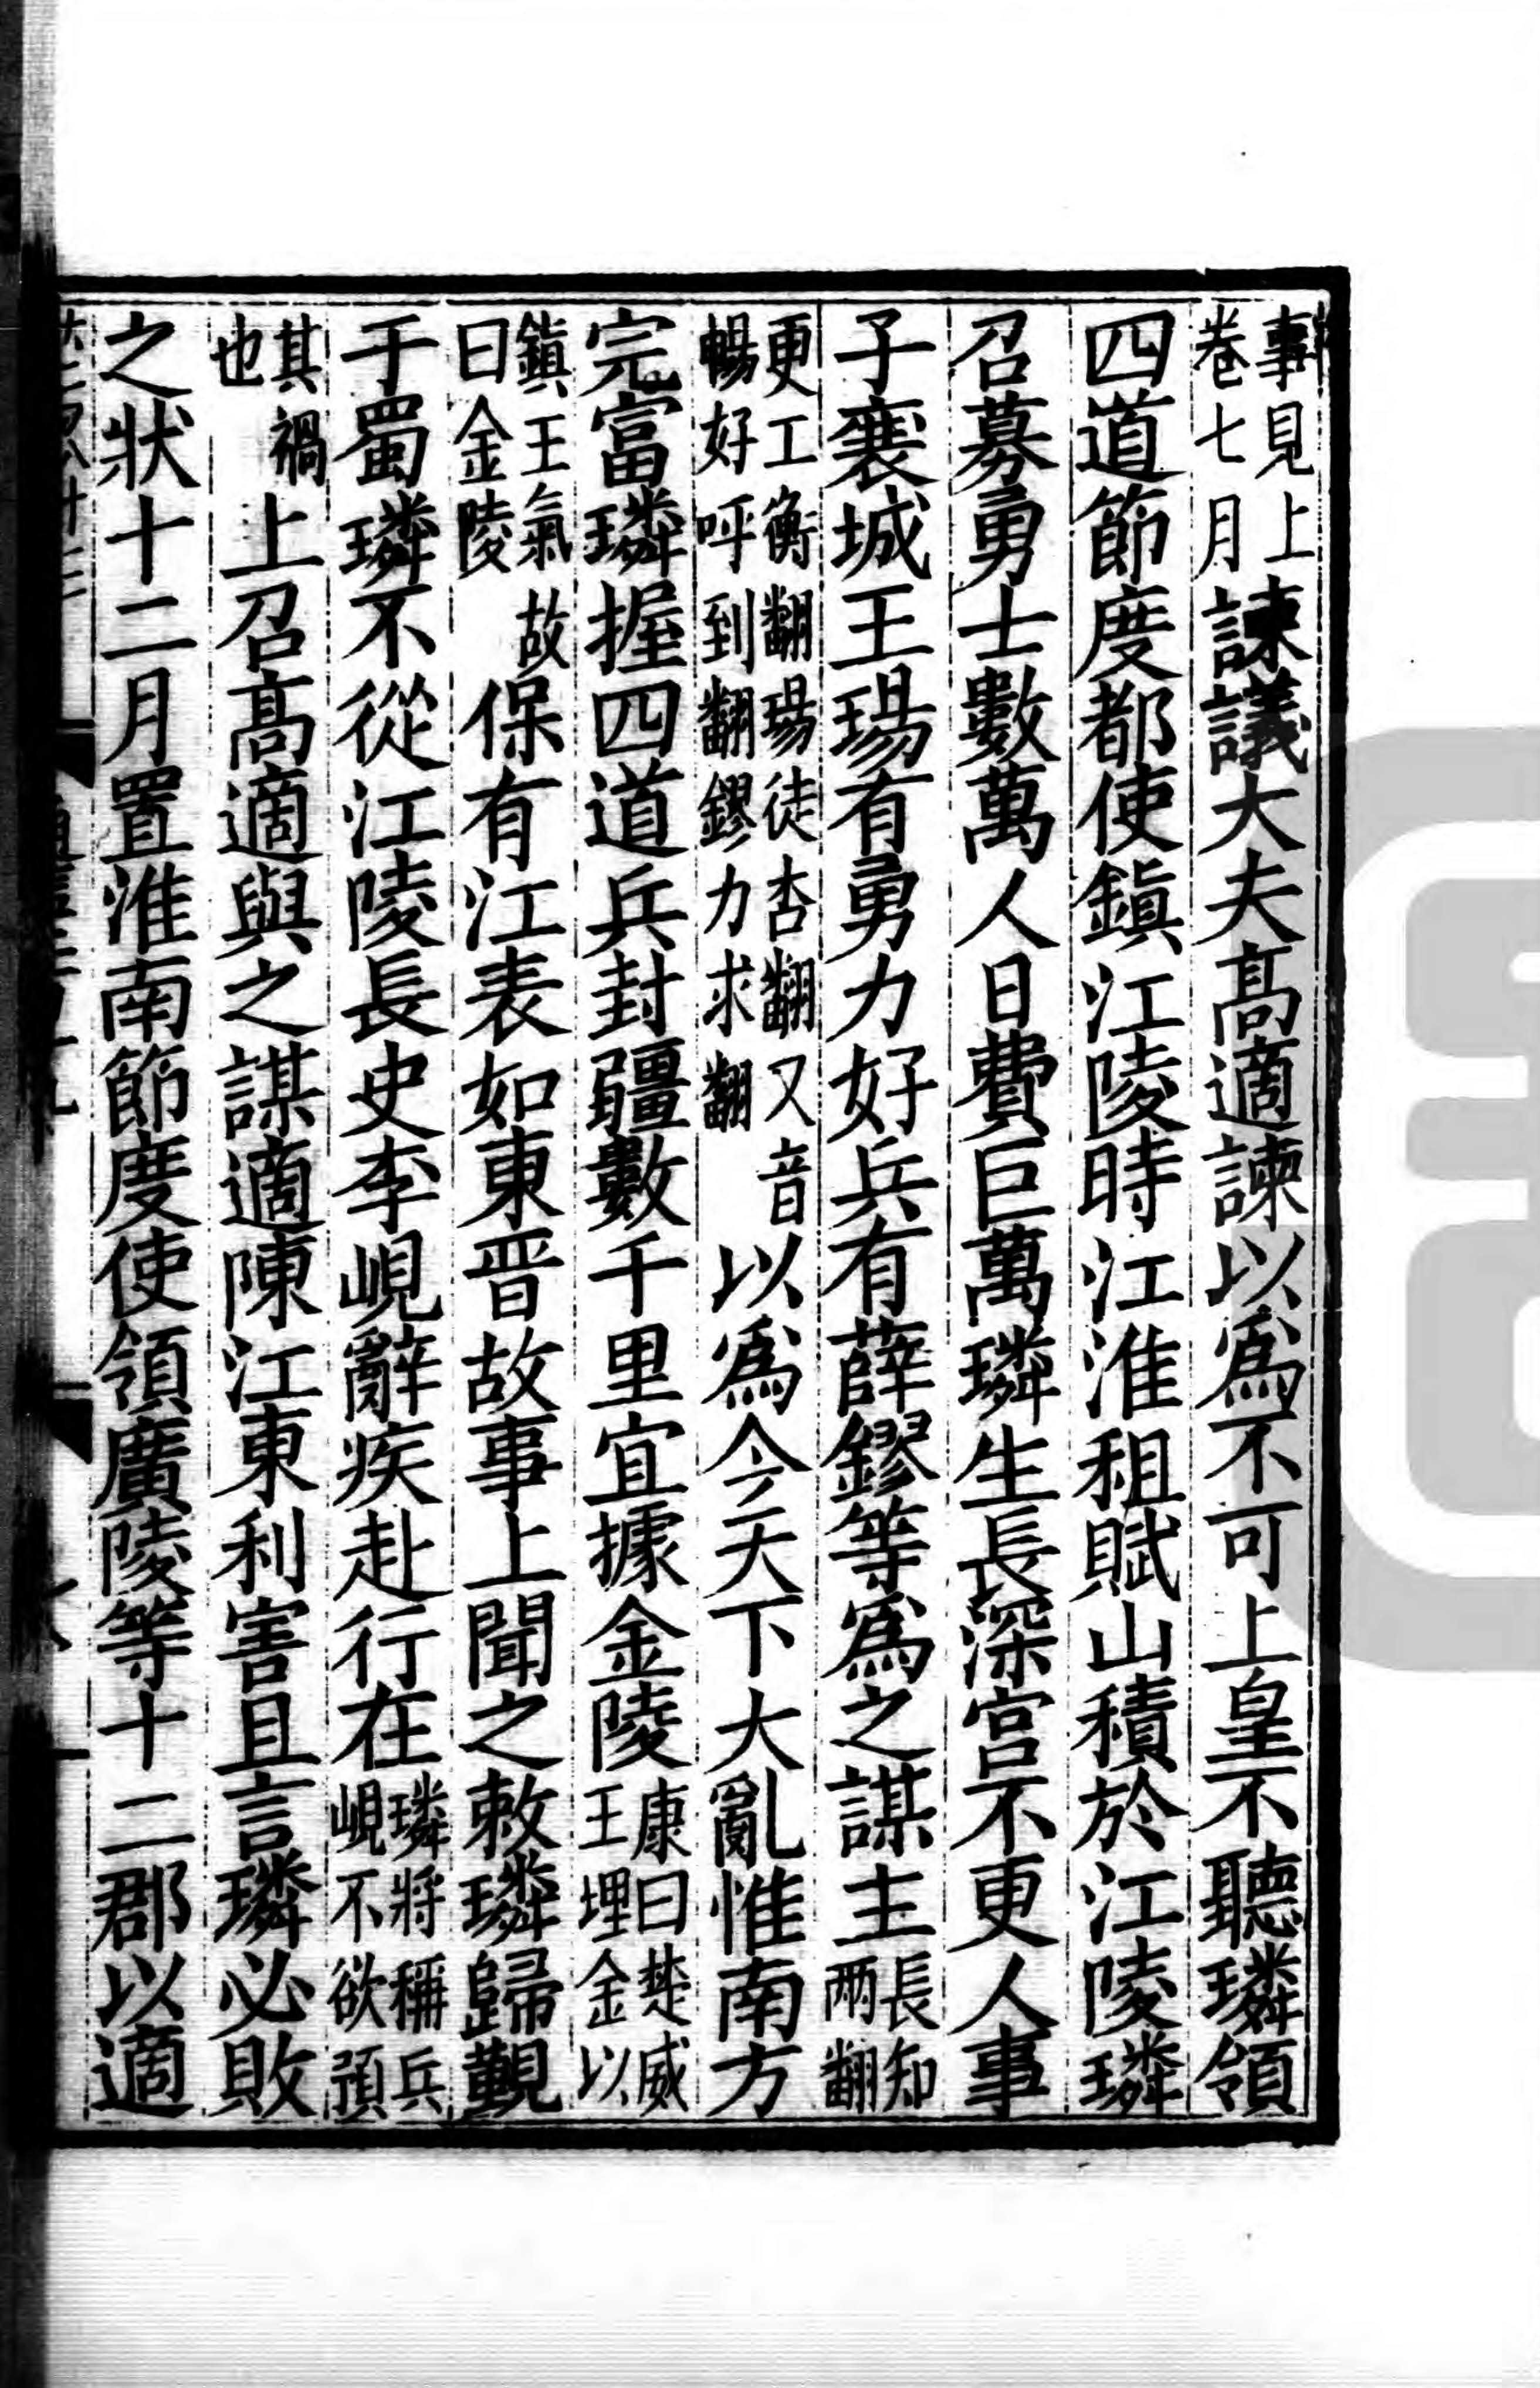 事見上卷七月諫議大夫高適諫以爲不可上皇不聽璘領
四道節度都使鎭江陵時江淮租賦山積於江陵璘
召募勇士數萬人日費巨萬璘生長深宫不更人事
子襄城王瑒有勇力好兵有薛鏐等爲之謀主長知兩翻
更工衡翻瑒徒杏翻又音暢好呼到翻鏐力求翻以爲今天下大亂惟南方
完富璘握四道兵封疆數千里宜據金陵康曰楚威王埋金以
鎭王氣故曰金陵保有江表如東晋故事上聞之敕璘歸覲
于蜀璘不從江陵長史李峴辭疾赴行在璘將稱兵峴不欲預
其禍也上召高適與之謀適陳江東利害且言璘必敗
之狀十二月置淮南節度使領廣陵等十二郡以適